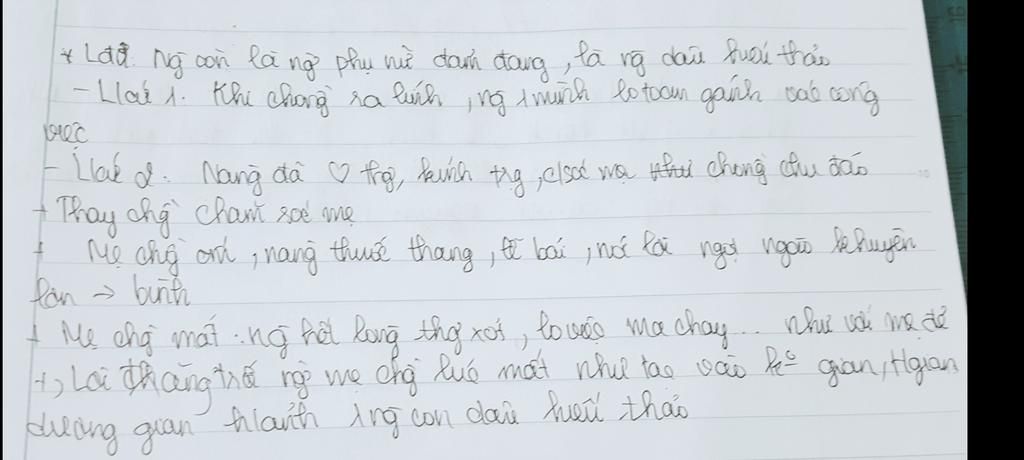 * Lđ2. Ng còn là ng phụ nữ đảm đang, là ng dâu hiếu thảo
- Lláẻ 1. Khi chồng ra lính, ng 1 mình lo toan gánh vác công
việc
- Lláẻ 2. Nàng đã ♡ thg, kính trg, c/sóc mẹ chồng chu đáo
+ Thay chg chăm sóc mẹ
+ Mẹ chg ốm, nàng thuốc thang, lễ bái, nói lời ngọt ngào khuyên
lơn → bình
+ Mẹ chg mất. ng hết lòng thg xót, lo việc ma chay... như với mẹ đẻ
+, Lời trăng trối ng mẹ chg lúc mất như tạc vào ko gian, tgian
dương gian 1 ng con dâu hiếu thảo